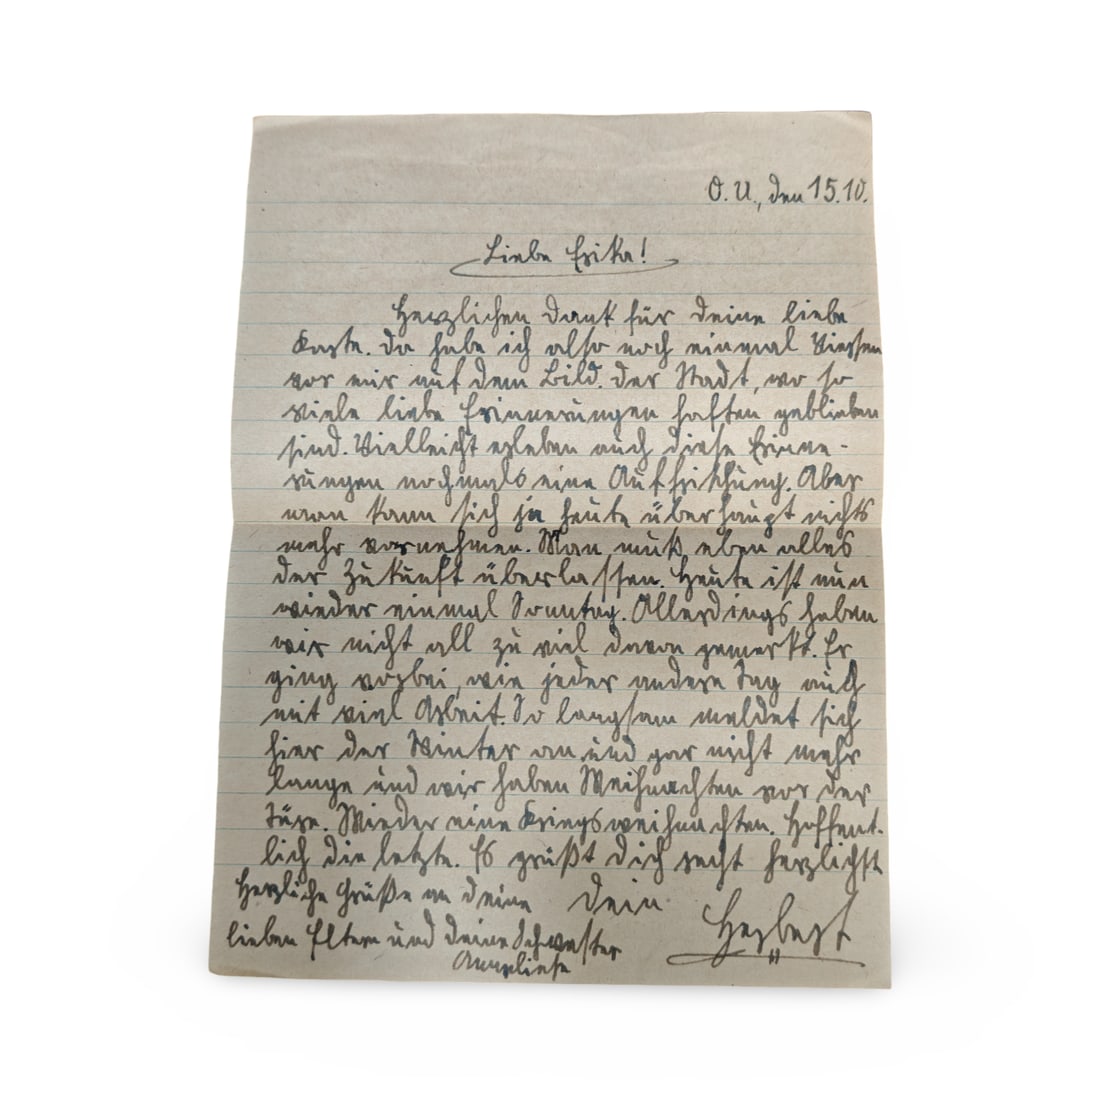 O.U., den 15.10.
Liebe Erika!
Herzlichen Dank für deine liebe
Karte. Da habe ich also noch einmal Viersen
vor mir auf dem Bild. Der Stadt, wo so
viele liebe Erinnerungen haften geblieben
sind. Vielleicht erleben auch diese Erinne-
rungen nochmals eine Auffrischung. Aber
man kann sich ja heute überhaupt nichts
mehr vornehmen. Man muß eben alles
der Zukunft überlassen. Heute ist nun
wieder einmal Sonntag. Allerdings haben
wir nicht all zu viel davon gemerkt. Er
ging vorbei, wie jeder andere Tag auch
mit viel Arbeit. So langsam meldet sich
hier der Winter an und gar nicht mehr
lange und wir haben Weihnachten vor der
Türe. Wieder eine Kriegsweihnachten. Hoffent-
lich die letzte. Es grüßt dich recht herzlichst
dein Herbert
Herzliche Grüße an deine
lieben Eltern und deine Schwester
Anneliese